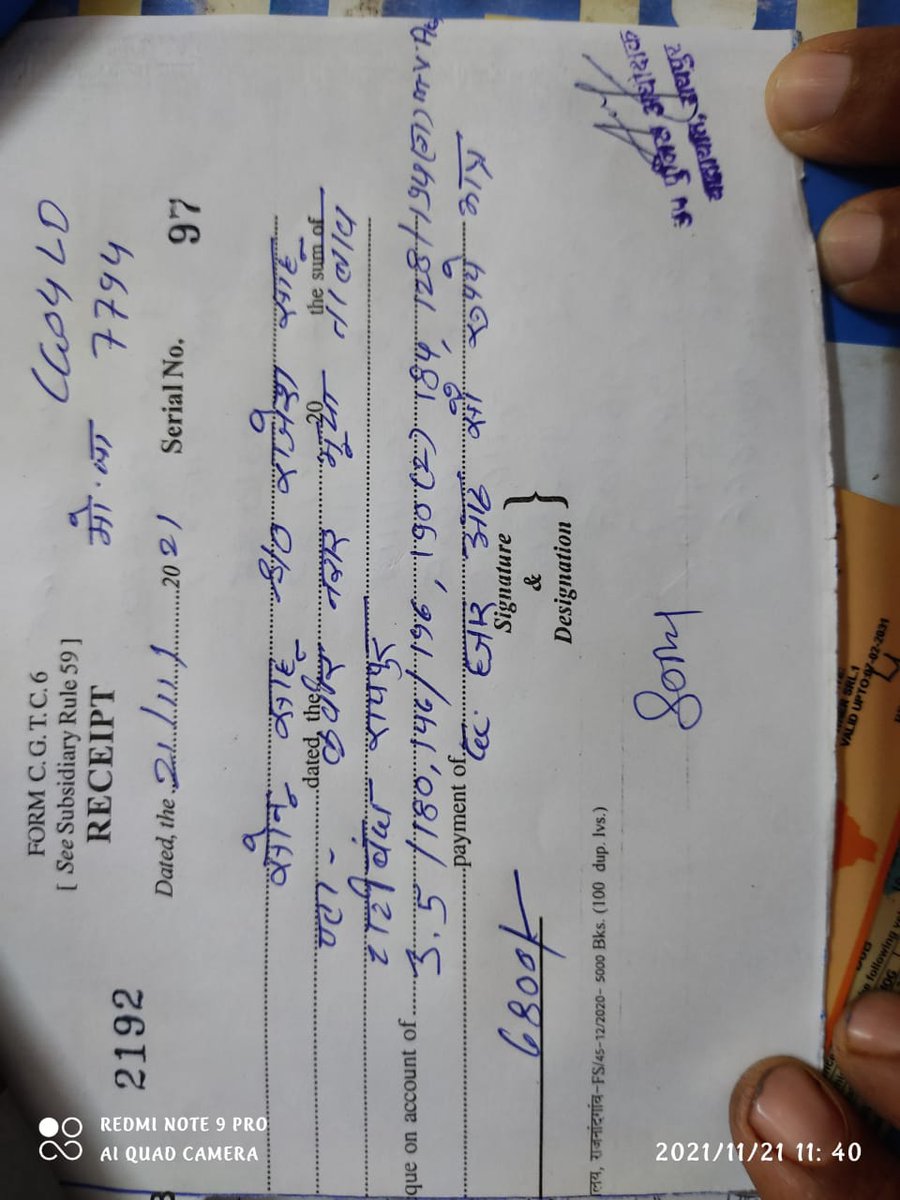 FORM C.G.T.C. 6
[ See Subsidiary Rule 59 ]
2192
RECEIPT
मो.सा
CG04LD
7794
Dated, the 21/11/ 2021
Serial No. 97
सोनू साहू S/O राजेश साहू
पता - dated the 20 the sum of
कबीर नगर
तालाब
टाटीबंध रायपुर
que on account of 3.5/180, 146/196, 190(2) 184, 128/194(
payment of छः हजार आठ सौ रूपये मात्र
Signature
&
Designation
6800/-
Sonu
लय, राजनांदगाँव–FS/45–12/2020– 5000 Bks. (100 dup. lvs.)
VALID UPTO:07-02-2031
REDMI NOTE 9 PRO
AI QUAD CAMERA
2021/11/21 11:40